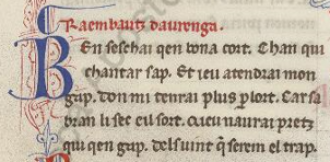 Raembautz daurenga.
BEn seschai qen bona cort. Chan qui
chantar sap. Et ieu atendrai mon
gup. don mi tenrai plus plort. Car sa
bran li set eil sort. cueu naurai pretz
qui qen gup. dels uint q̃ serem el trap.